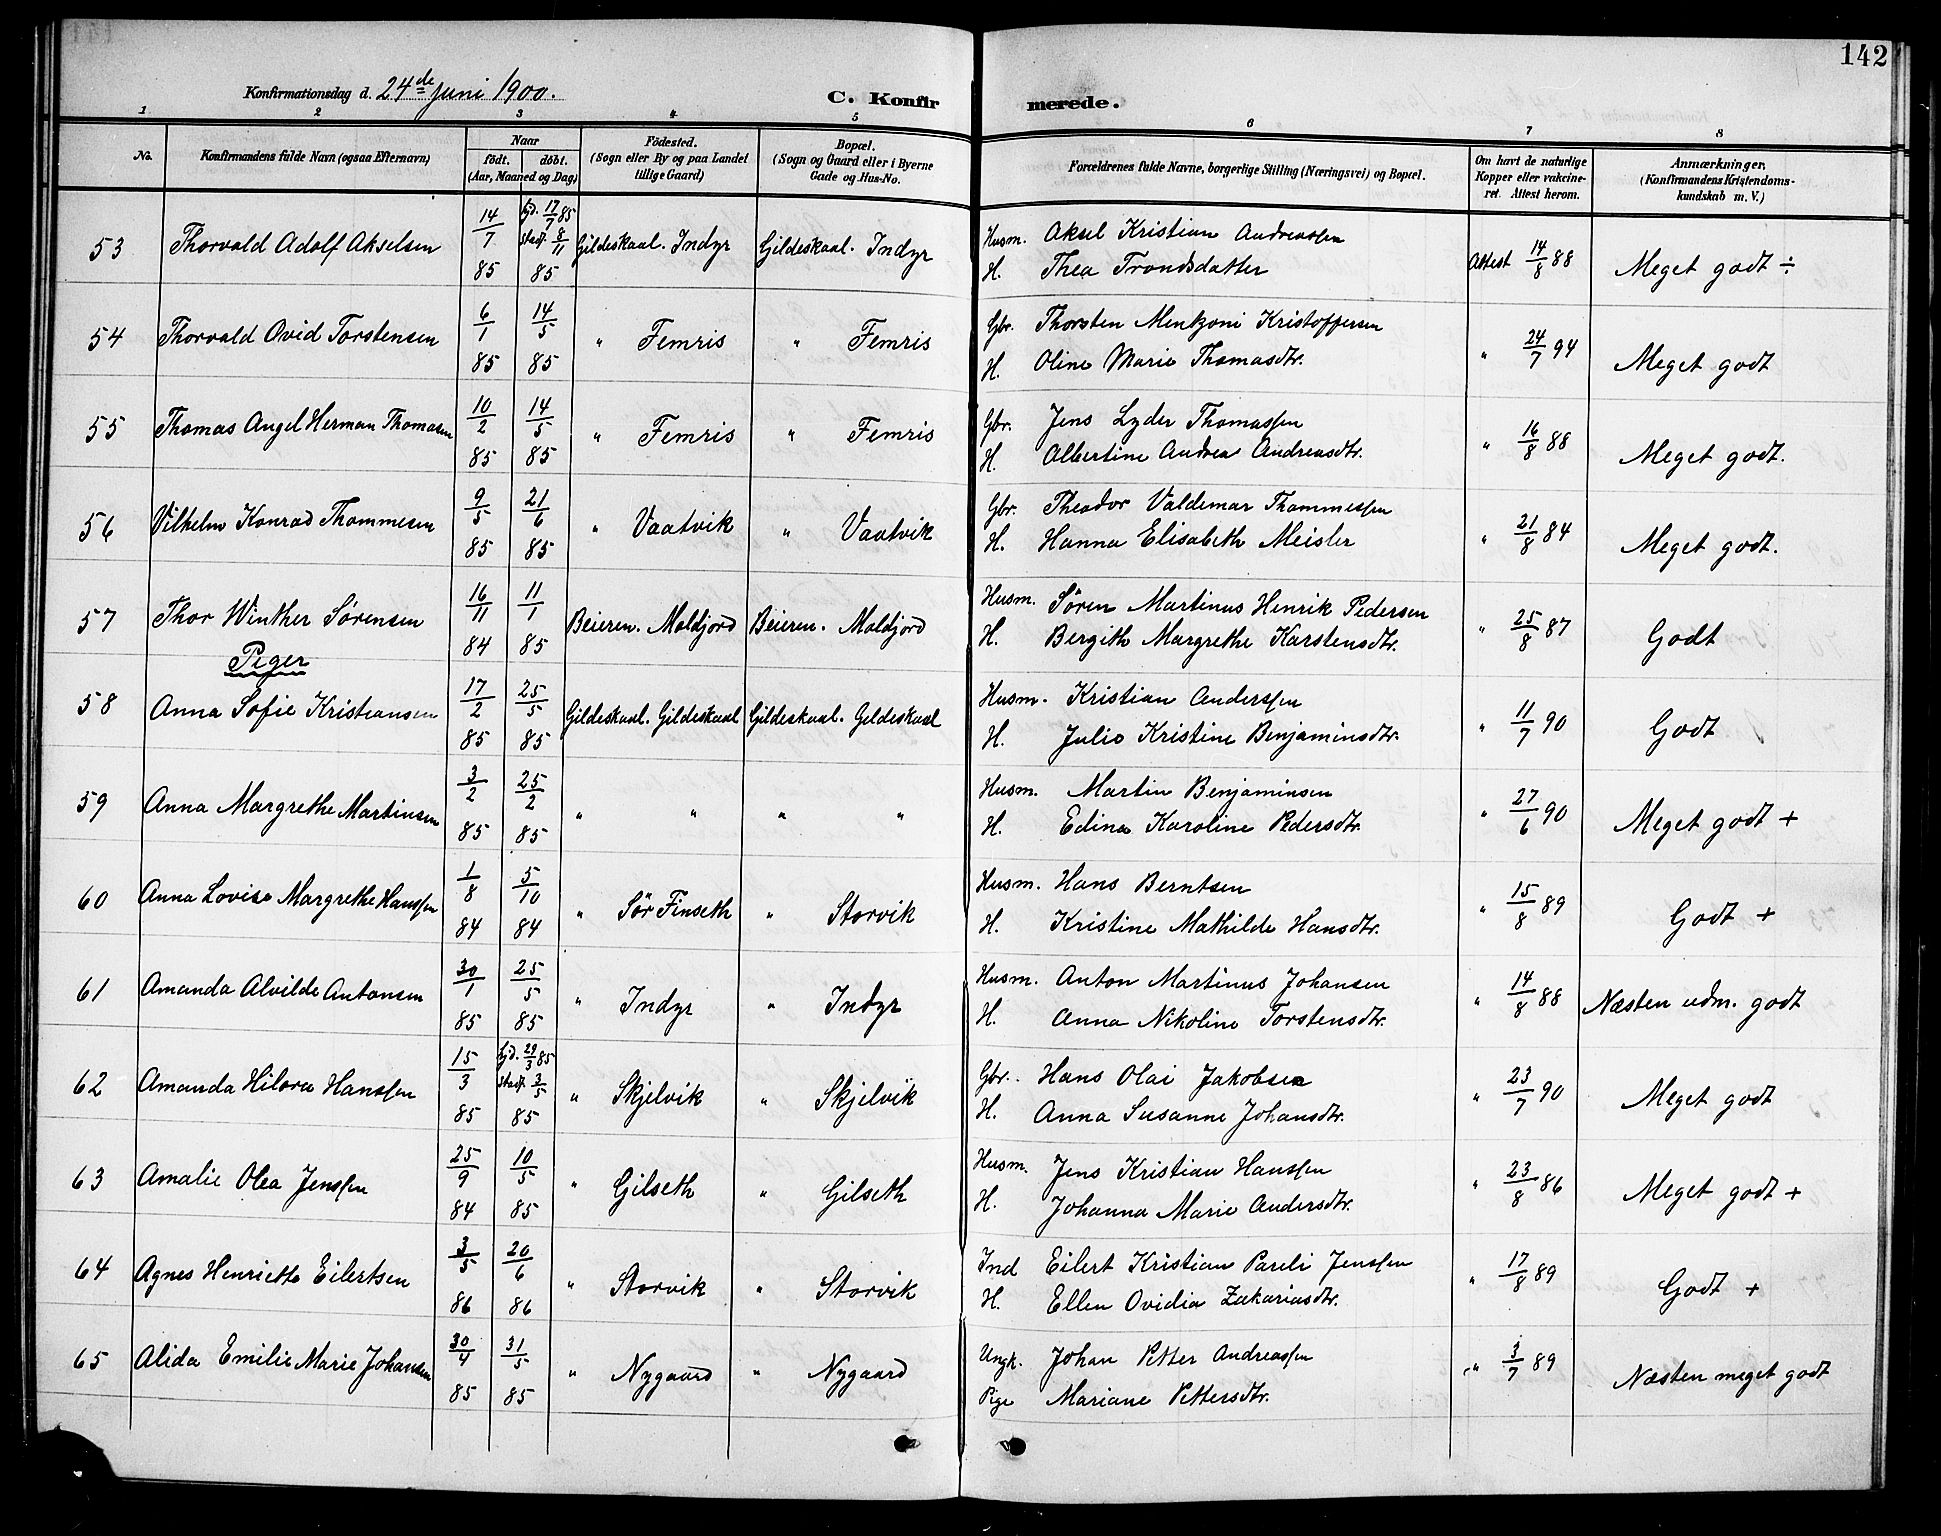 142
Konfirmationsdag d. 24de Juni 1900.
C. Konfir merede.
1 2 3 4 5 6 7 8
No. Konfirmandens fulde Navn (ogsaa Efternavn) Naar födt. döbt. (Aar, Maaned og Dag) Födested. (Sogn eller By og paa Landet tillige Gaard) Bopæl. (Sogn og Gaard eller i Byerne Gade og Hus-No. Forældrenes fulde Navne, borgerlige Stilling (Næringsvei) og Bopæl. Om havt de naturlige Kopper eller vakcineret. Attest herom. Anmærkninger. (Konfirmandens Kristendomskundskab m. V.)
53 Thorvald Adolf Akselsen 14/7 85 hjd. 17/7 85 stadf. 8/11 85 Gildeskaal. Indyr Gildeskaal. Indyr Husm. Aksel Kristian Andreassen
H. Thea Trondsdatter Attest 14/8 88 Meget godt ÷
54 Thorvald Ovid Torstensen 6/1 85 14/5 85 " Femris " Femris Gbr. Thorsten Mentzoni Kristoffersen
H. Oline Marie Thomasdtr. " 24/7 94 Meget godt
55 Thomas Angel Herman Thomasen 10/2 85 14/5 85 " Femris " Femris Gbr. Jens Lyder Thomassen
H. Albertine Andrea Andreasdtr. " 16/8 88 Meget godt.
56 Vilhelm Konrad Thommesen 9/5 85 21/6 85 " Vaatvik " Vaatvik Gbr. Theodor Valdemar Thommessen
H. Hanna Elisabeth Meisler " 21/8 84 Meget godt.
57 Thor Winther Sørensen 16/11 84 11/1 85 Beieren. Moldjord Beieren. Moldjord Husm. Søren Martinus Henrik Pedersen
H. Bergith Margrethe Karstensdtr. " 25/8 87 Godt
Piger
58 Anna Sofie Kristiansen 17/2 85 25/5 85 Gildeskaal. Gildeskaal Gildeskaal. Gildeskaal Husm. Kristian Anderssen
H. Julie Kristine Benjaminsdtr. " 11/7 90 Godt
59 Anna Margrethe Martinsen 3/2 85 25/2 85 " " " " Husm. Martin Benjaminsen
H. Edina Karoline Pedersdtr. " 27/6 90 Meget godt +
60 Anna Lovise Margrethe Hanssen 1/8 84 5/10 84 " Sör Finseth " Storvik Husm. Hans Berntsen
H. Kristine Mathilde Hansdtr. " 15/8 89 Godt +
61 Amanda Alvilde Antonsen 30/1 85 25/5 85 " Indyr " Indyr Husm. Anton Martinus Johansen
H. Anna Nikoline Torstensdtr. " 14/8 88 Næsten udm. godt
62 Amanda Hilora Hanssen 15/3 85 hjd. 29/3 85 stadf. 3/5 85 " Skjelvik " Skjelvik Gbr. Hans Olai Jakobsen
H. Anna Susanne Johansdtr. " 23/7 90 Meget godt
63 Amalie Olea Jenssen 25/9 84 10/5 85 " Gilseth " Gilseth Husm. Jens Kristian Hanssen
H. Johanna Marie Andersdtr. " 23/8 86 Meget godt +
64 Agnes Henriette Eilertsen 3/5 86 20/6 86 " Storvik " Storvik Ind Eilert Kristian Pareli Jenssen
H. Ellen Ovidia Zakariasdtr. " 17/8 89 Godt +
65 Alida Emilie Marie Johansen 30/4 85 31/5 85 " Nygaard " Nygaard Ungk. Johan Petter Andreassen
Pige Mariane Pettersdtr. " 3/7 89 Næsten meget godt